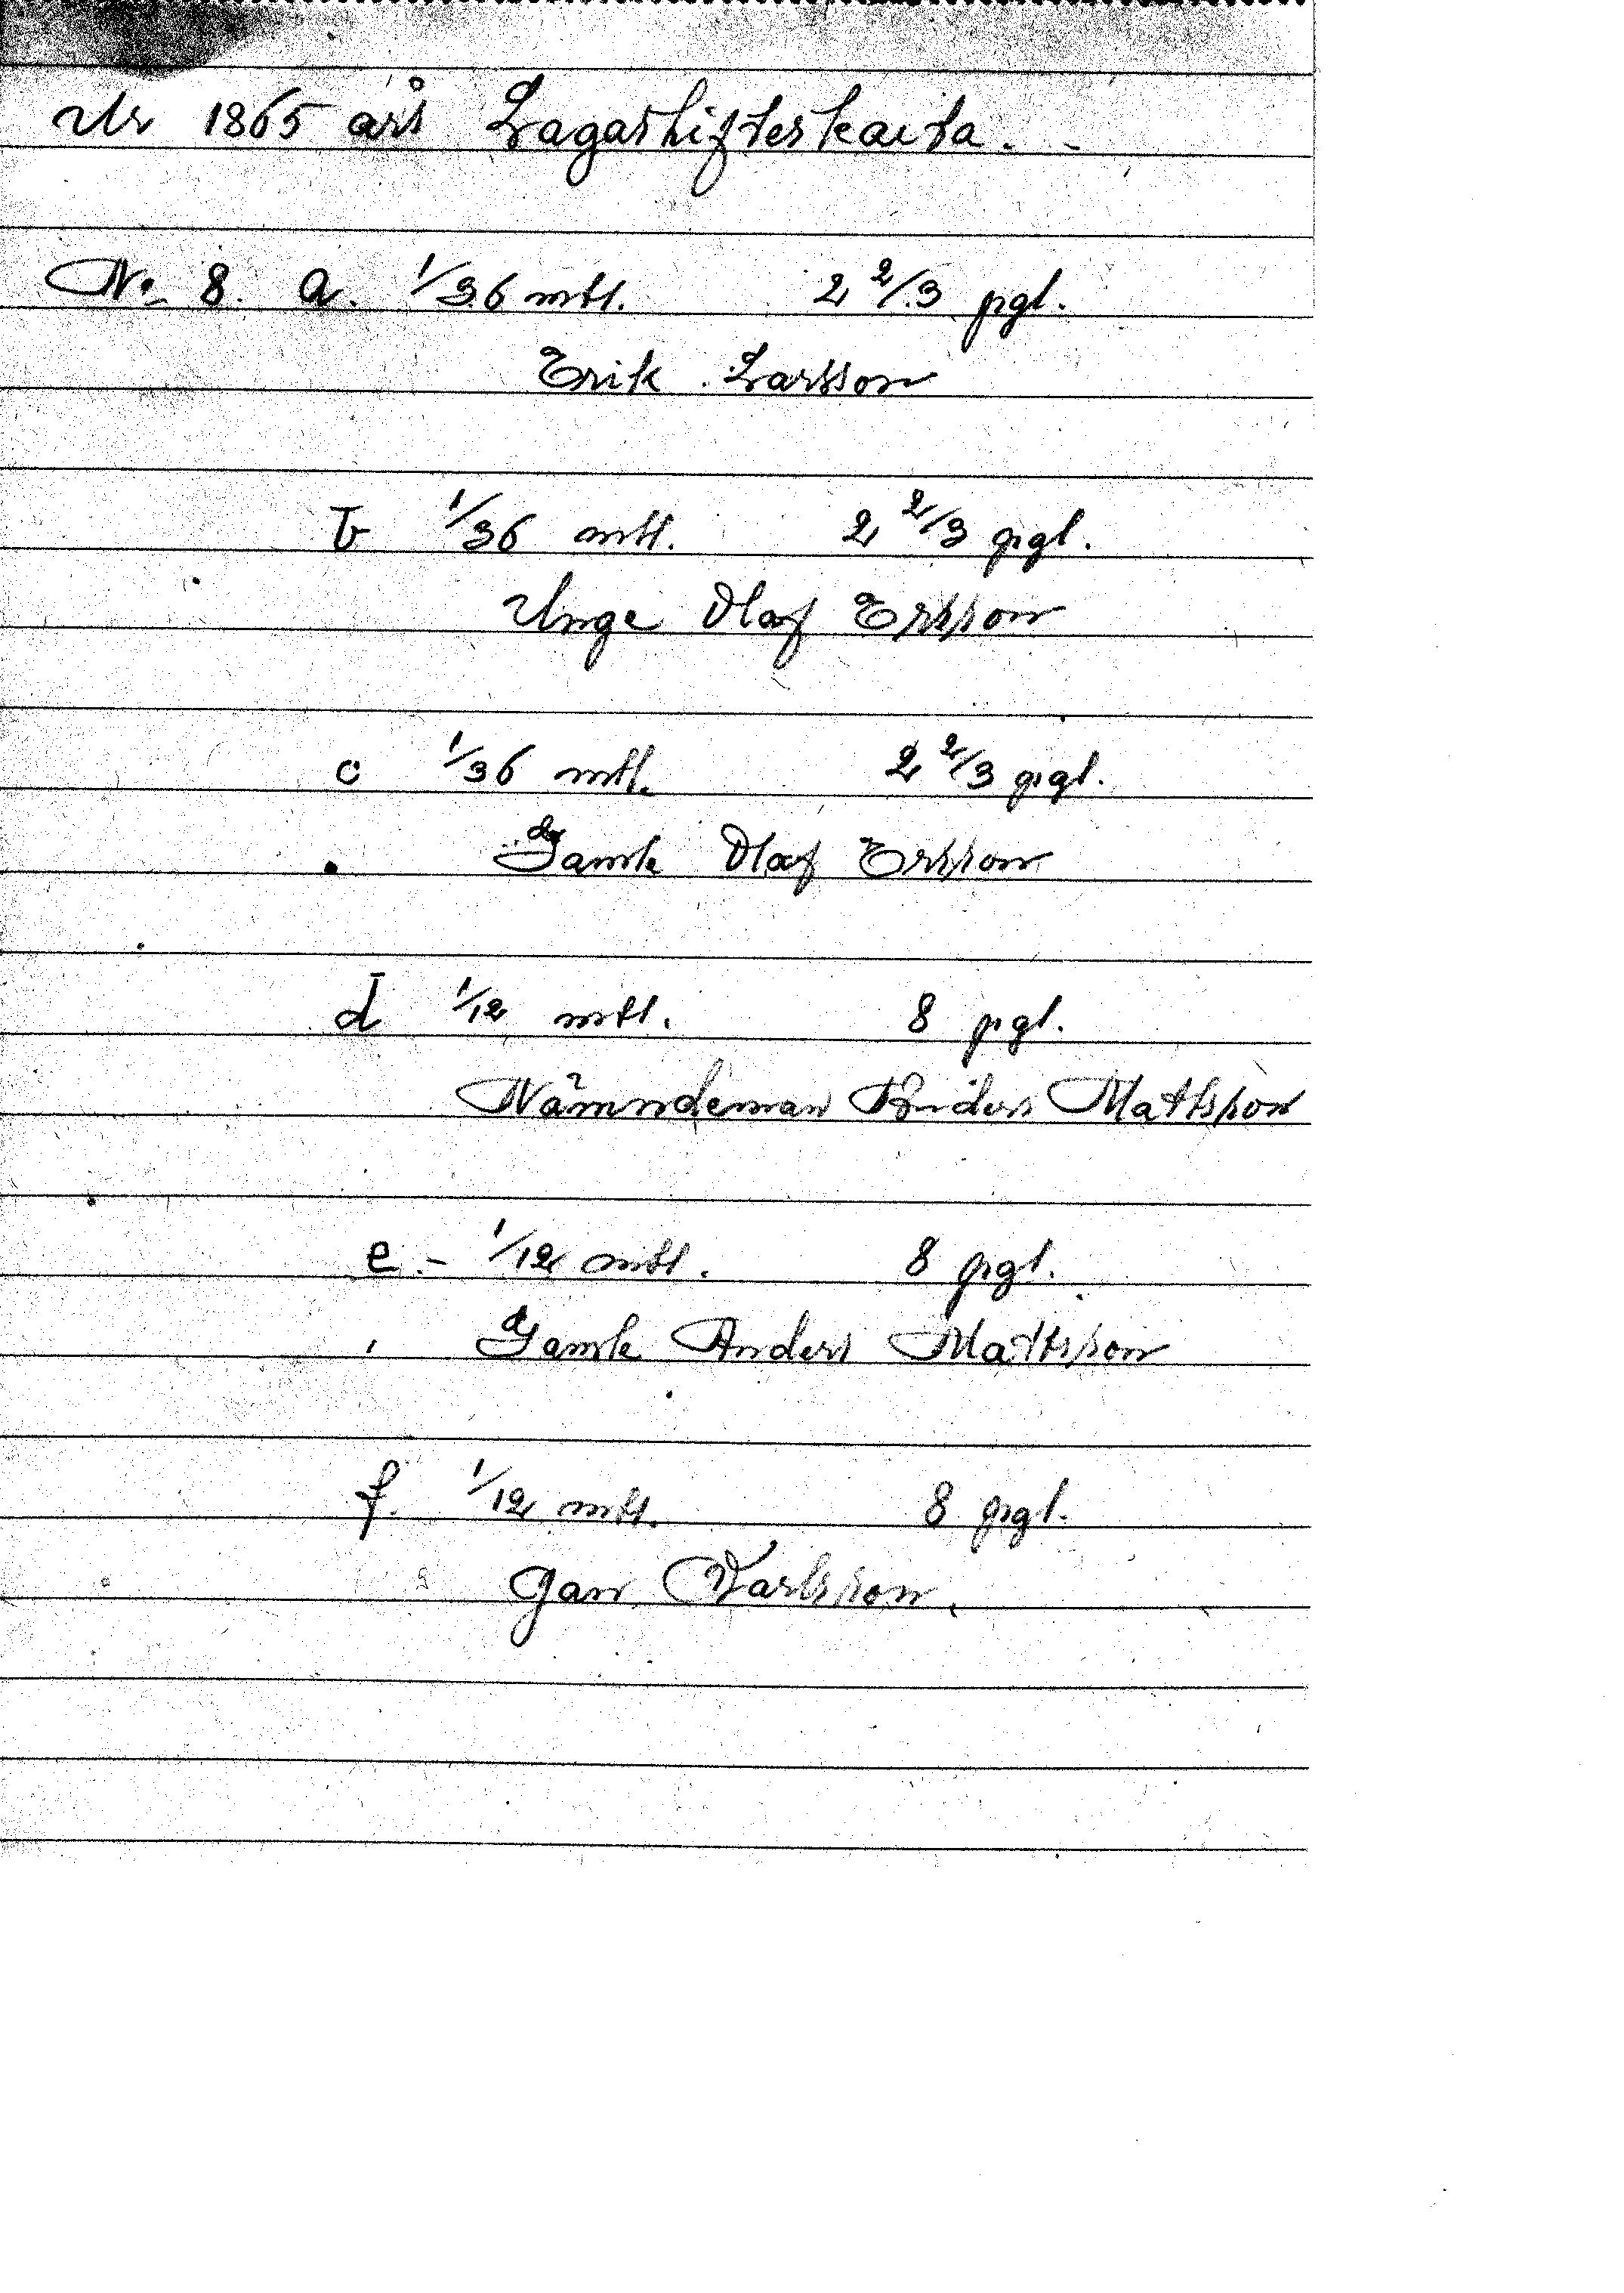 Ur 1865 års Lagaskifteskarta.
No 8. a. 1/36 mtl. 2 2/3 pgl.
Erik Larsson
b 1/36 mtl. 2 2/3 pgl.
Unge Olof Ersson
c 1/36 mtl. 2 2/3 pgl.
Gamle Olof Ersson
d 1/12 mtl. 8 pgl.
Nämndeman Anders Matsson
e.- 1/12 mtl. 8 pgl.
Gamle Anders Matsson
f. 1/12 mtl. 8 pgl.
Jan Karlsson.